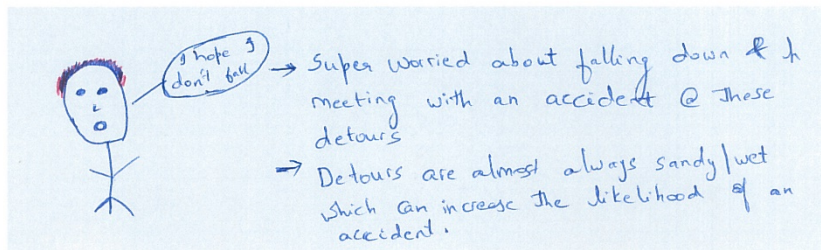 I hope I
don't fall
→ Super worried about falling down &
meeting with an accident @ these
detours
→ Detours are almost always sandy/wet
which can increase the likelihood of an
accident.